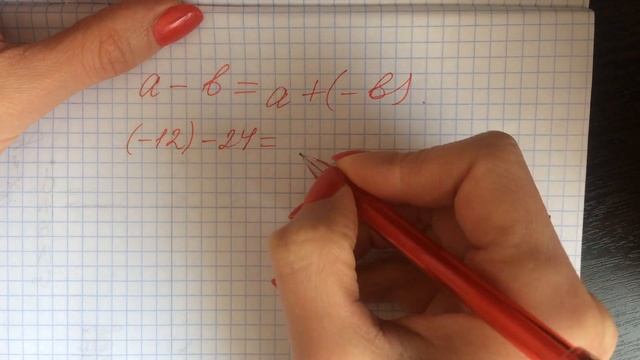 a - b = a + (-b).
(-12) - 24 =